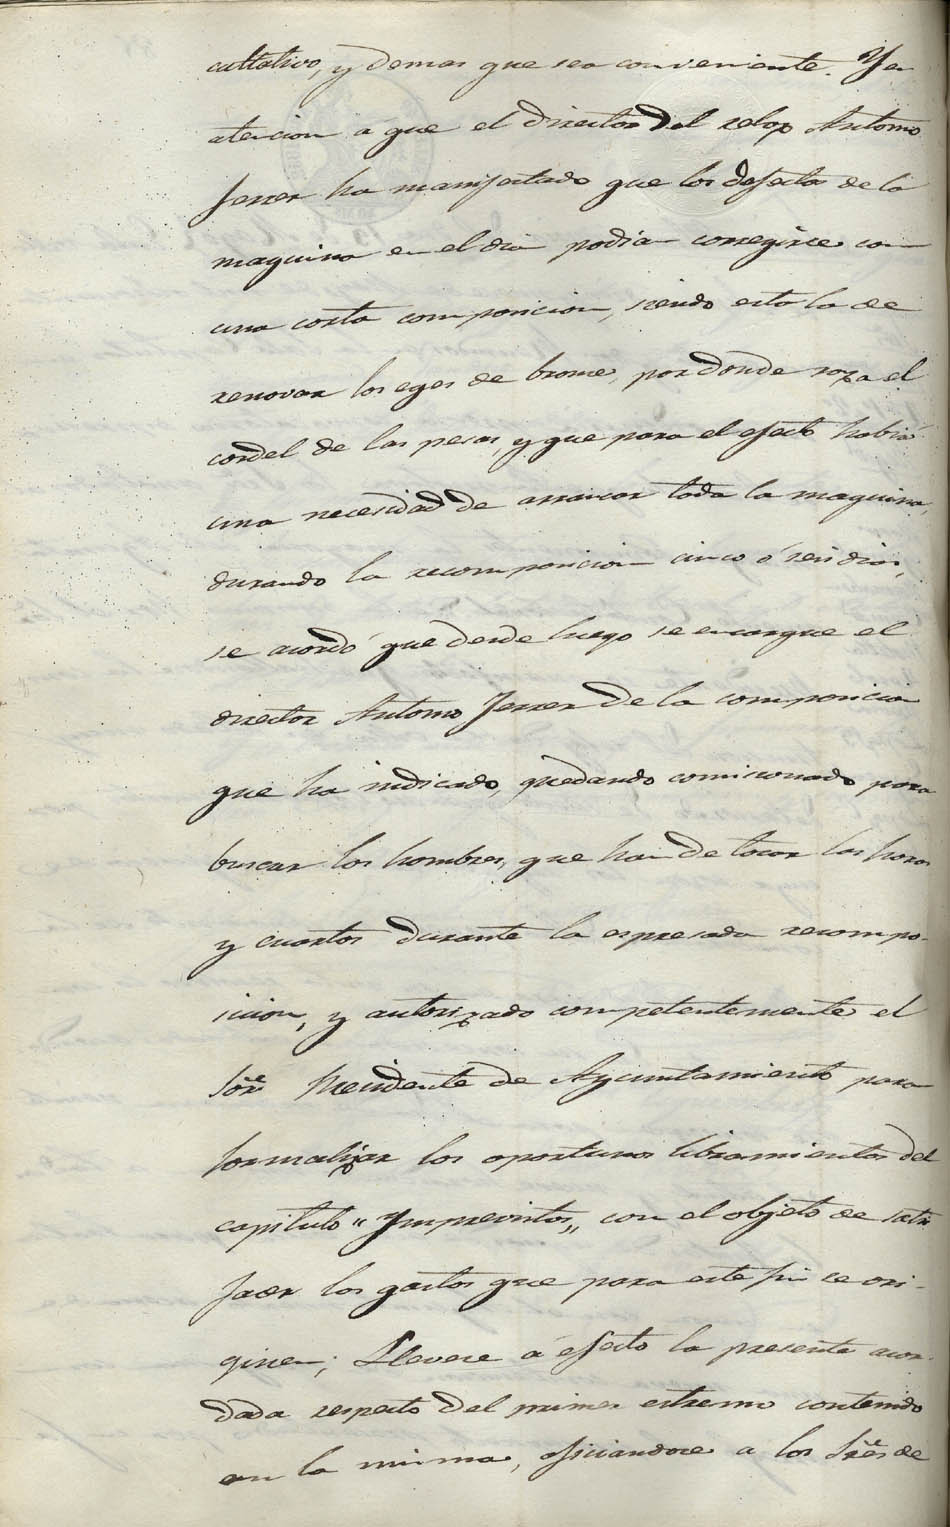 cultativo, y demas que sea conveniente. Y en
atencion á que el Director del relox Antonio
Ferrer ha manifestado que los defectos de la
maquina en el dia podian corregirse con
una corta composicion, siendo esta la de
renovar los eges de bronce, por donde roza el
cordel de las pesas, y que para el efecto habia
una necesidad de arrancar toda la maquina,
durando la recomposicion cinco ó seis dias,
se acordó que desde luego se encargue el
director Antonio Ferrer de la composicion
que ha indicado, quedando comisionado para
buscar los hombres, que han de tocar las horas
y cuartos durante la espresada recompo-
sicion, y autorizado competentemente el
Sor. Presidente de Ayuntamiento para
formalizar los oportunos libramientos del
capitulo "Ymprevistos,, con el objeto de satis
facer los gastos que para este fin se ori-
ginen; Llevese á efecto la presente acor-
dada respecto del primer estremo contenido
en la misma, oficiandose a los Sres. de